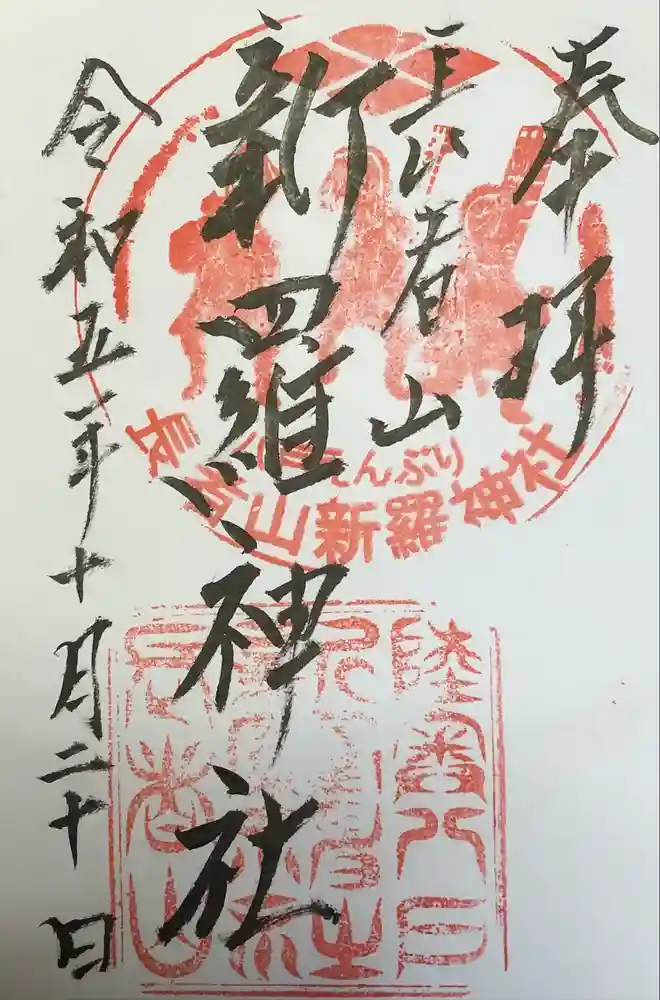 奉拝
長者山
新羅神社
令和五年十月二十日
八戸えんぶり
長者山新羅神社